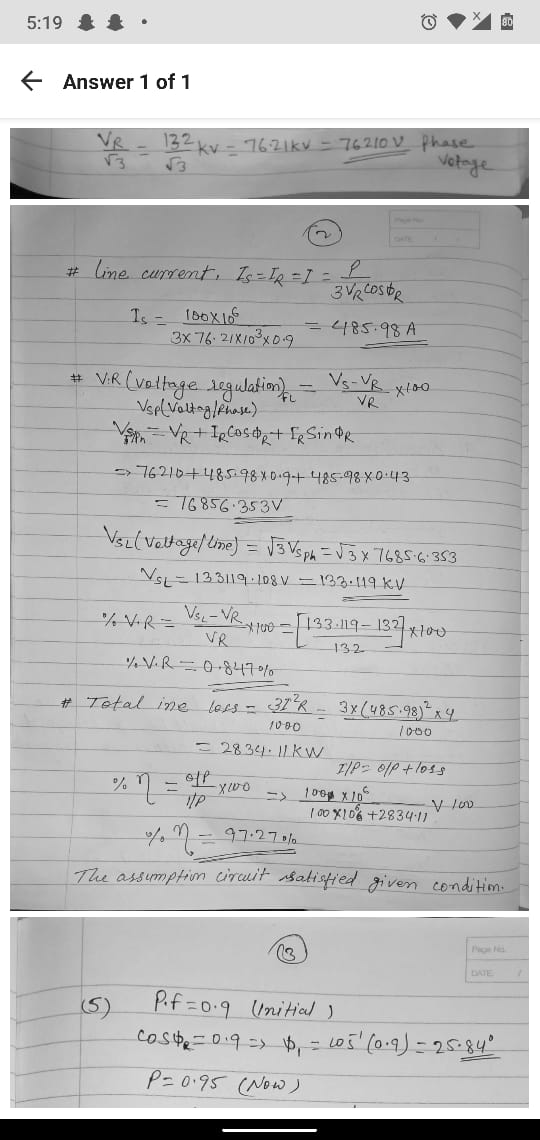 5:19
80
Answer 1 of 1
VR/√3 = 132/√3 kV = 76.21kV = 76210V Phase
Votage
2
Page No.
DATE
# line current, IS = IR = I = P/3VRcosϕR
IS = 100×10⁶/3×76.21×10³×0.9 = 485.98 A
# V.R (voltage regulation)FL = VS-VR/VR ×100
VSP(Voltag/Phase)
VSPh = VR + IRCosϕR + IRSinϕR
=> 76210+485.98×0.9+485.98×0.43
= 76856.353V
VSL (Voltage/line) = √3VSph = √3 × 7685.6.353
VSL = 133119.108V = 133.119 KV
% V.R = VSL-VR/VR ×100 = [133.119-132/132]×100
% V.R = 0.847%
# Total ine loss = 3I²R/1000 = 3×(485.98)²×4/1000
= 2834.11KW
I/P = O/P + loss
% η = O/P/I/P ×100 => 100×10⁶/100×10⁶+2834.11 × 100
% η = 97.27%
The assumption circuit satisfied given condition.
3
Page No.
DATE /
(5) P.f = 0.9 (Initial)
cosϕR = 0.9 => ϕ₁ = cos⁻¹(0.9) = 25.84°
P = 0.95 (Now)